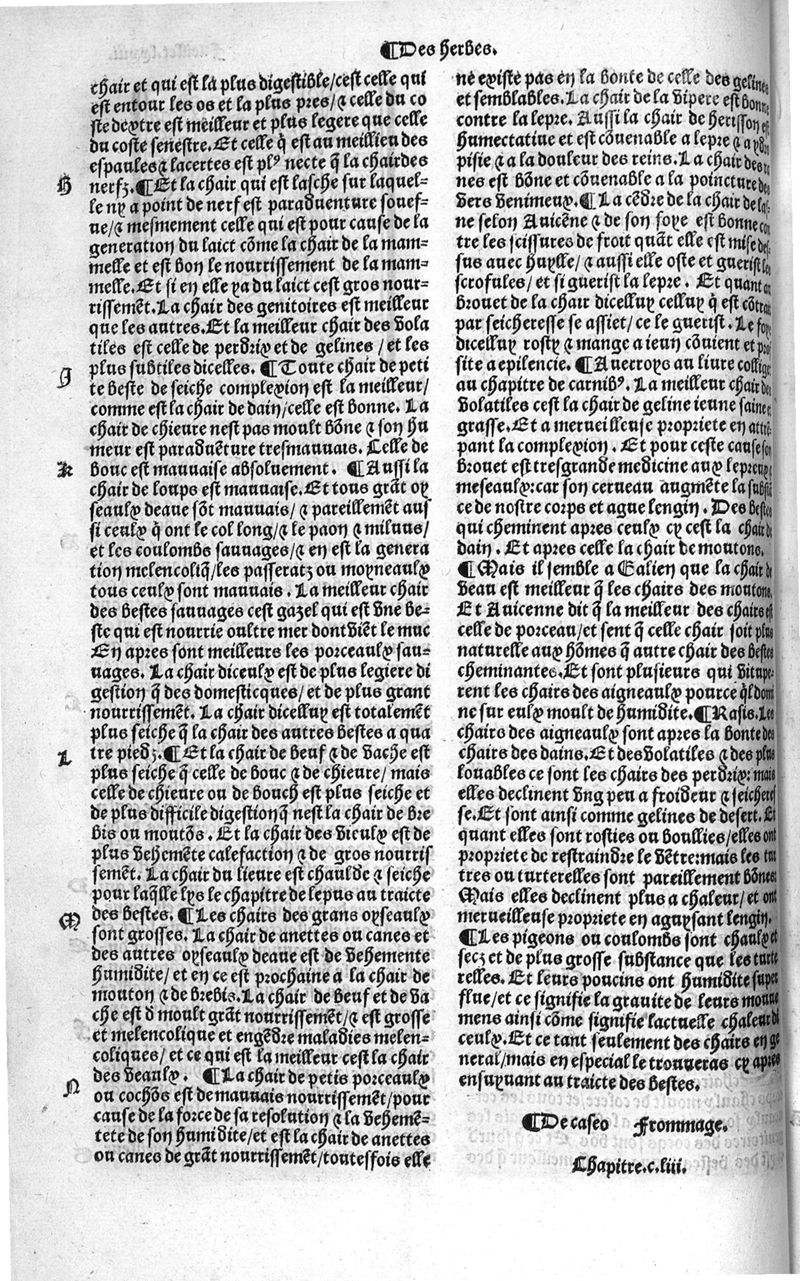 ¶Des herbes.
chair et qui est la plus digestible/cest celle qui
est entour les os et la plus pres/⁊ celle du co
ste dextre est meilleur et plus legere que celle
du coste senestre. Et celle q̃ est au meillieu des
espaules ⁊ lacertes est plꝰ necte q̃ la chair des
H
nerfz. ¶Et la chair qui est lasche sur laquel-
le ny a point de nerf est paraduenture souef-
ue/⁊ mesmement celle qui est pour cause de la
generation du laict cõme la chair de la mam-
melle et est bon le nourrissement de la mam-
melle. Et si en elle ya du laict cest gros nour-
rissemẽt. La chair des genitoires est meilleur
que les autres. Et la meilleur chair des vola
tiles est celle de perdrix et de gelines / et les
J
plus subtiles dicelles. ¶Toute chair de peti
te beste de seiche complexion est la meilleur/
comme est la chair de dain/celle est bonne. La
chair de chieure nest pas moult bõne ⁊ son hu
meur est paraduẽture tresmauuais. Celle de
K
bouc est mauuaise absoluement. ¶Aussi la
chair de loups est mauuaise. Et tous grãt oy
seaulx deaue sõt mauuais/⁊ pareillemẽt aus
si ceulx q̃ ont le col long/⁊ le paon ⁊ miluus/
et les coulombs sauuages/⁊ en est la genera
tion melencoliq̃/les passeratz ou moyneaulx
tous ceulx sont mauuais. La meilleur chair
des bestes sauuages cest gazel qui est vne be-
ste qui est nourrie oultre mer dont viẽt le muc
En apres sont meilleurs les porceaulx sau-
uages. La chair diceulx est de plus legiere di
gestion q̃ des domesticques/et de plus grant
nourrissemẽt. La chair dicelluy est totalemẽt
plus seiche q̃ la chair des autres bestes a qua
L
tre piedz. ¶Et la chair de beuf ⁊ de vache est
plus seiche q̃ celle de bouc ⁊ de chieure/ mais
celle de chieure ou de bouch est plus seiche et
de plus difficile digestion q̃ nest la chair de bre
bis ou moutõs. Et la chair des vieulx est de
plus vehemẽte calefaction ⁊ de gros nourris
semẽt. La chair du lieure est chaulde ⁊ seiche
pour laq̃lle lys le chapitre de lepus au traicte
M
des bestes. ¶Les chairs des grans oyseaulx
sont grosses. La chair de anettes ou canes et
des autres oyseaulx deaue est de vehemente
humidite/et en ce est prochaine a la chair de
mouton ⁊ de brebis. La chair de beuf et de va
che est d̃ moult grãt nourrissemẽt/⁊ est grosse
et melencolique et engẽdre maladies melen-
coliques/et ce qui est la meilleur cest la chair
N
des veaulx. ¶La chair de petis porceaulx
ou cochõs est de mauuais nourrissemẽt/pour
cause de la force de sa resolution ⁊ la vehemẽ-
tete de son humidite/et est la chair de anettes
ou canes de grãt nourrissemẽt/toutesfois elle
ne existe pas en la bonte de celle des gelines
et semblables. La chair de la vipere est bonne
contre la lepre. Aussi la chair de herisson est
humectatiue et est cõuenable a lepre ⁊ a ydro
pisie ⁊ a la douleur des reins. La chair des
nes est bõne et cõuenable a la poincture des
vers venimeux. ¶La cẽdre de la chair de
ne selon Auicẽne ⁊ de son foye est bonne con
tre les scissures de froit quãt elle est mise des
sus auec huylle/⁊ aussi elle oste et guerist les
scrofules/et si guerist la lepre. Et quant au
brouet de la chair dicelluy celluy q̃ est cõtrait
par seicheresse se assiet/ce le guerist. Le foye
dicelluy rosty ⁊ mange a ieun cõuient et prof
site a epilencie. ¶Auerroys au liure colliget
au chapitre de carnibꝰ. La meilleur chair des
volatiles cest la chair de geline ieune saine et
grasse. Et a merueilleuse propriete en attrẽ
pant la complexion. Et pour ceste cause son
brouet est tresgrande medicine aux lepreux
meseaulx: car son cerueau augmẽte la substã
ce de nostre corps et ague lengin. Des bestes
qui cheminent apres ceulx cy cest la chair de
dain. Et apres celle la chair de moutons.
¶Mais il semble a Galien que la chair de
veau est meilleur q̃ les chairs des moutons.
Et Auicenne dit q̃ la meilleur des chairs est
celle de porceau/et sent q̃ celle chair soit plus
naturelle aux hõmes q̃ autre chair des bestes
cheminantes. Et sont plusieurs qui vitupe-
rent les chairs des aigneaulx pource q̃l dom
ne sur eulx moult de humidite. ¶Rasis. Les
chairs des aigneaulx sont apres la bonte des
chairs des dains. Et des volatiles ⁊ des plus
louables ce sont les chairs des perdrix: mais
elles declinent vng peu a froideur ⁊ seicheres
se. Et sont ainsi comme gelines de desert. Et
quant elles sont rosties ou boullies/elles ont
propriete de restraindre le vẽtre: mais les tur
tres ou turterelles sont pareillement bõnes.
Mais elles declinent plus a chaleur/et ont
merueilleuse propriete en aguysant lengin.
¶Les pigeons ou coulombs sont chaulx et
secz et de plus grosse substance que les turte
relles. Et leurs poucins ont humidite super
flue/et ce signifie la grauite de leurs mouue
mens ainsi cõme signifie lactuelle chaleur di
ceulx. Et ce tant seulement des chairs en ge
neral/mais en especial le trouueras cy apres
ensuyuant au traicte des bestes.
¶De caseo Frommage.
Chapitre.c.liii.